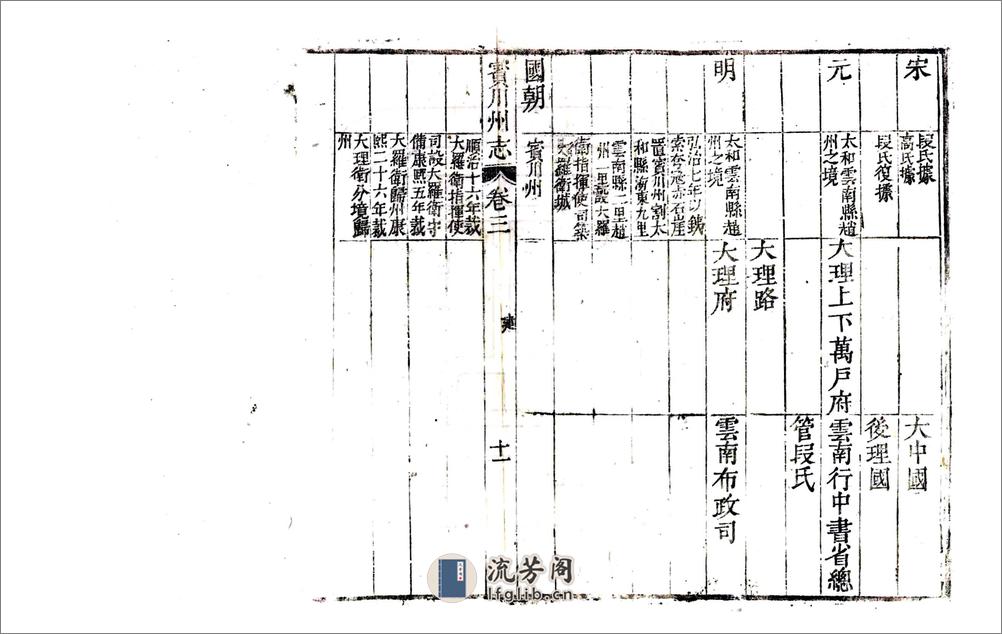 宋
段氏據
高氏據
大中國
段氏復據
後理國
元
太和雲南縣趙
州之境
大理上下萬戶府
雲南行中書省總
管段氏
大理路
明
太和雲南縣趙
州之境
大理府
雲南布政司
弘治七年以
索赤石崖
置賓川州割太
和縣海東九里
雲南縣一里趙
州一里設大羅
衛指揮使司築
大羅衛城
國朝
賓川州
賓川州志
卷三
建
十一
順治十六年裁
大羅衛指揮使
司設大羅衛守
備康熙五年裁
大羅衛歸州康
熙二十六年裁
大理衛分境歸
州
流芳阁
lfglib.cn